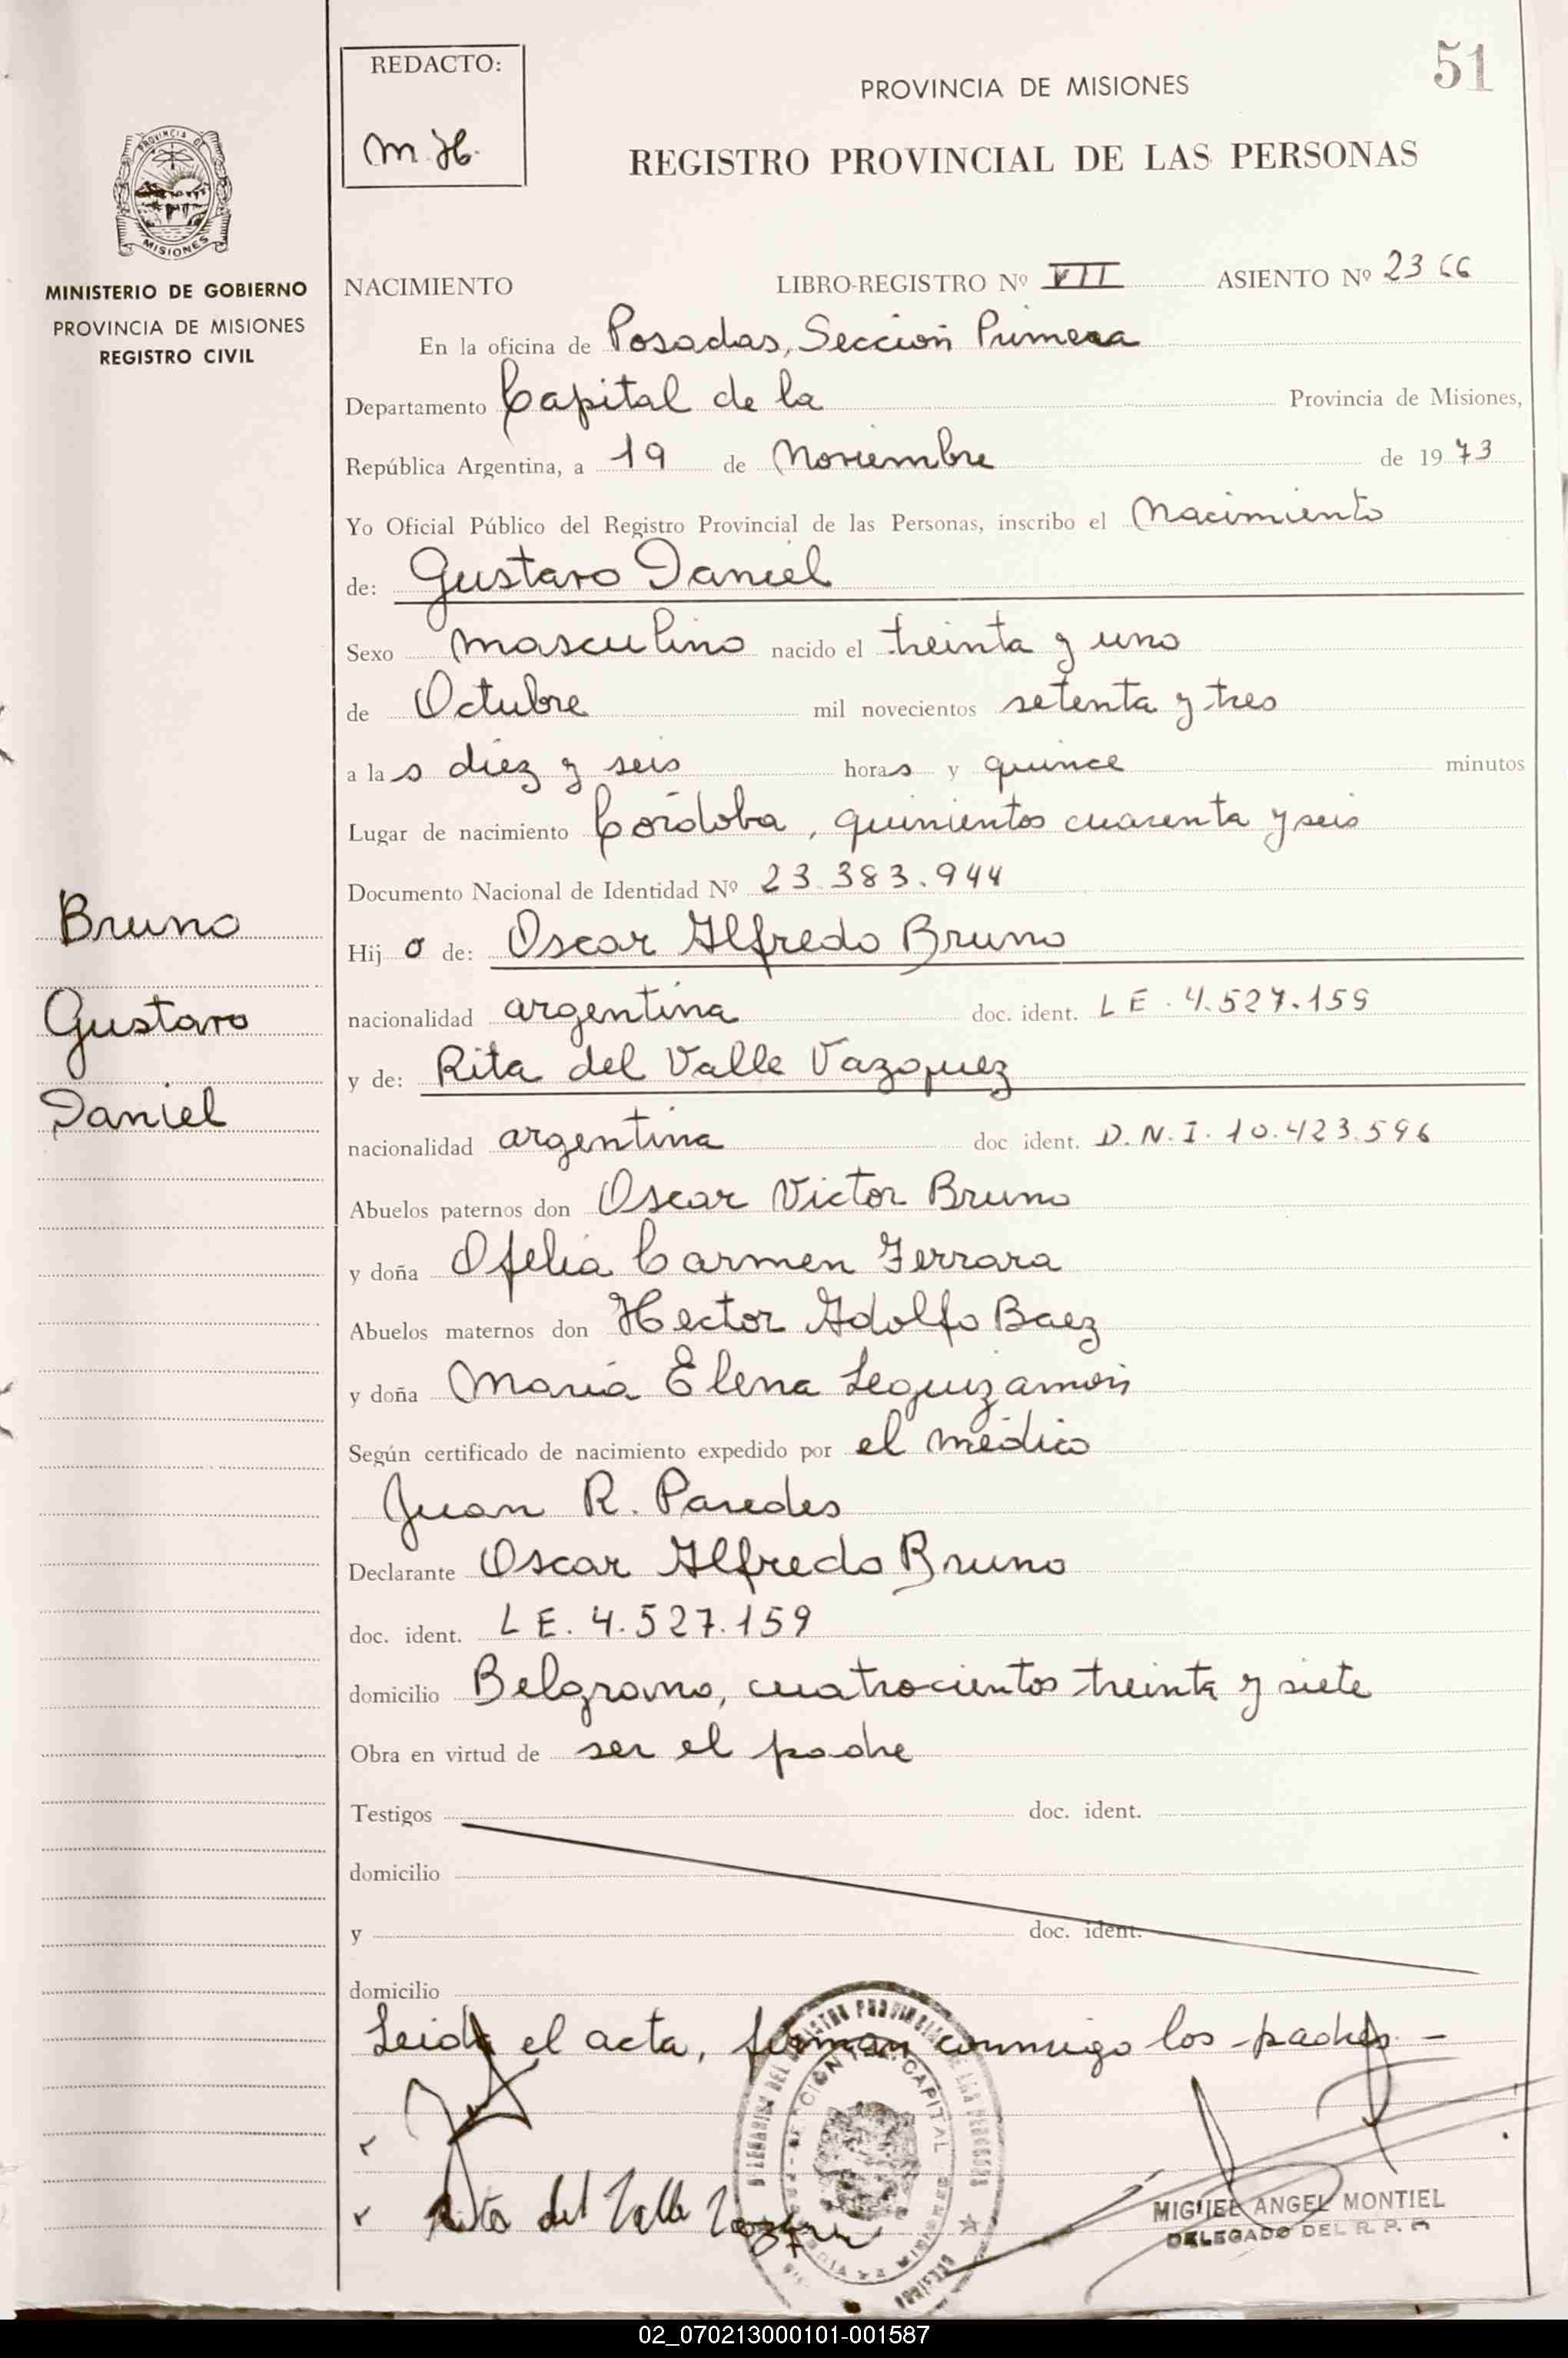 REDACTO:
M.H.
51
PROVINCIA DE MISIONES
REGISTRO PROVINCIAL DE LAS PERSONAS
PROVINCIA DE
MISIONES
MINISTERIO DE GOBIERNO
PROVINCIA DE MISIONES
REGISTRO CIVIL
NACIMIENTO LIBRO-REGISTRO Nº VII ASIENTO Nº 2366
En la oficina de Posadas, Sección Primera
Departamento Capital de la Provincia de Misiones,
República Argentina, a 19 de Noviembre de 1973
Yo Oficial Público del Registro Provincial de las Personas, inscribo el Nacimiento
de: Gustavo Daniel
Sexo masculino nacido el treinta y uno
de Octubre mil novecientos setenta y tres
a las diez y seis horas y quince minutos
Lugar de nacimiento Córdoba, quinientos cuarenta y seis
Documento Nacional de Identidad Nº 23.383.944
Hijo de: Oscar Alfredo Bruno
nacionalidad argentina doc. ident. LE. 4.527.159
y de: Rita del Valle Vazquez
nacionalidad argentina doc ident. D.N.I. 10.423.596
Abuelos paternos don Oscar Victor Bruno
y doña Ofelia Carmen Ferrara
Abuelos maternos don Hector Adolfo Baez
y doña María Elena Leguizamón
Según certificado de nacimiento expedido por el médico
Juan R. Paredes
Declarante Oscar Alfredo Bruno
doc. ident. LE. 4.527.159
domicilio Belgrano, cuatrocientos treinta y siete
Obra en virtud de ser el padre
Testigos doc. ident.
domicilio
y doc. ident.
domicilio
Leida el acta, firman conmigo los padres. -
Bruno
Gustavo
Daniel
Rita del Valle Vazquez
MIGUEL ANGEL MONTIEL
DELEGADO DEL R. P.
02_070213000101-001587